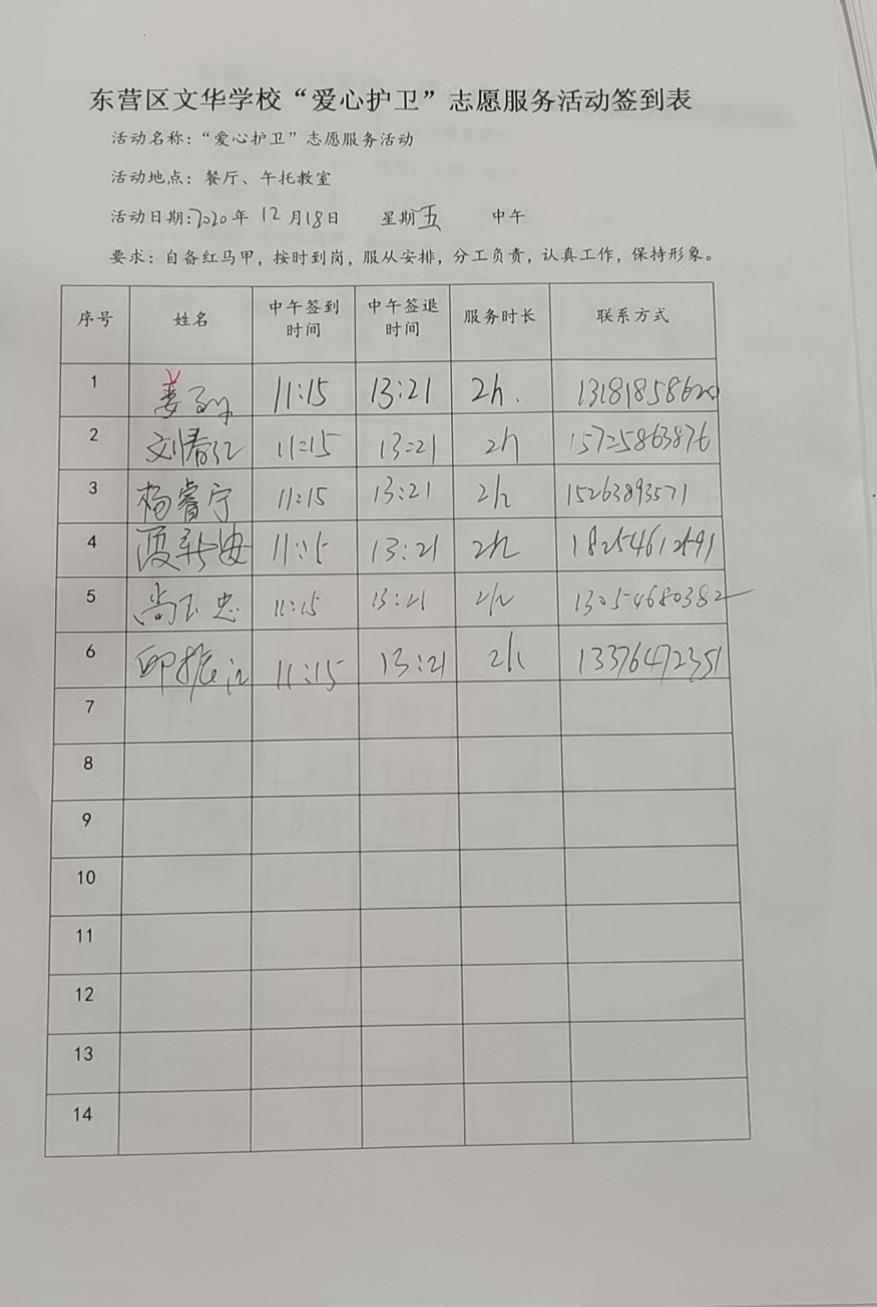 东营区文华学校“爱心护卫”志愿服务活动签到表
活动名称：“爱心护卫”志愿服务活动
活动地点：餐厅、午托教室
活动日期:2020年 12月18日 星期五 中午
要求：自备红马甲，按时到岗，服从安排，分工负责，认真工作，保持形象。
序号 姓名 中午签到时间 中午签退时间 服务时长 联系方式
1 姜 11:15 13:21 2h. 
2 刘春红 11:15 13:21 2h 15725863876
3 杨睿宁 11:15 13:21 2h 15263893571
4 11:15 13:21 2h 18254612591
5 尚玉忠 11:15 13:21 2h 13054680382
6 11:15 13:21 2h 13376472351
7
8
9
10
11
12
13
14